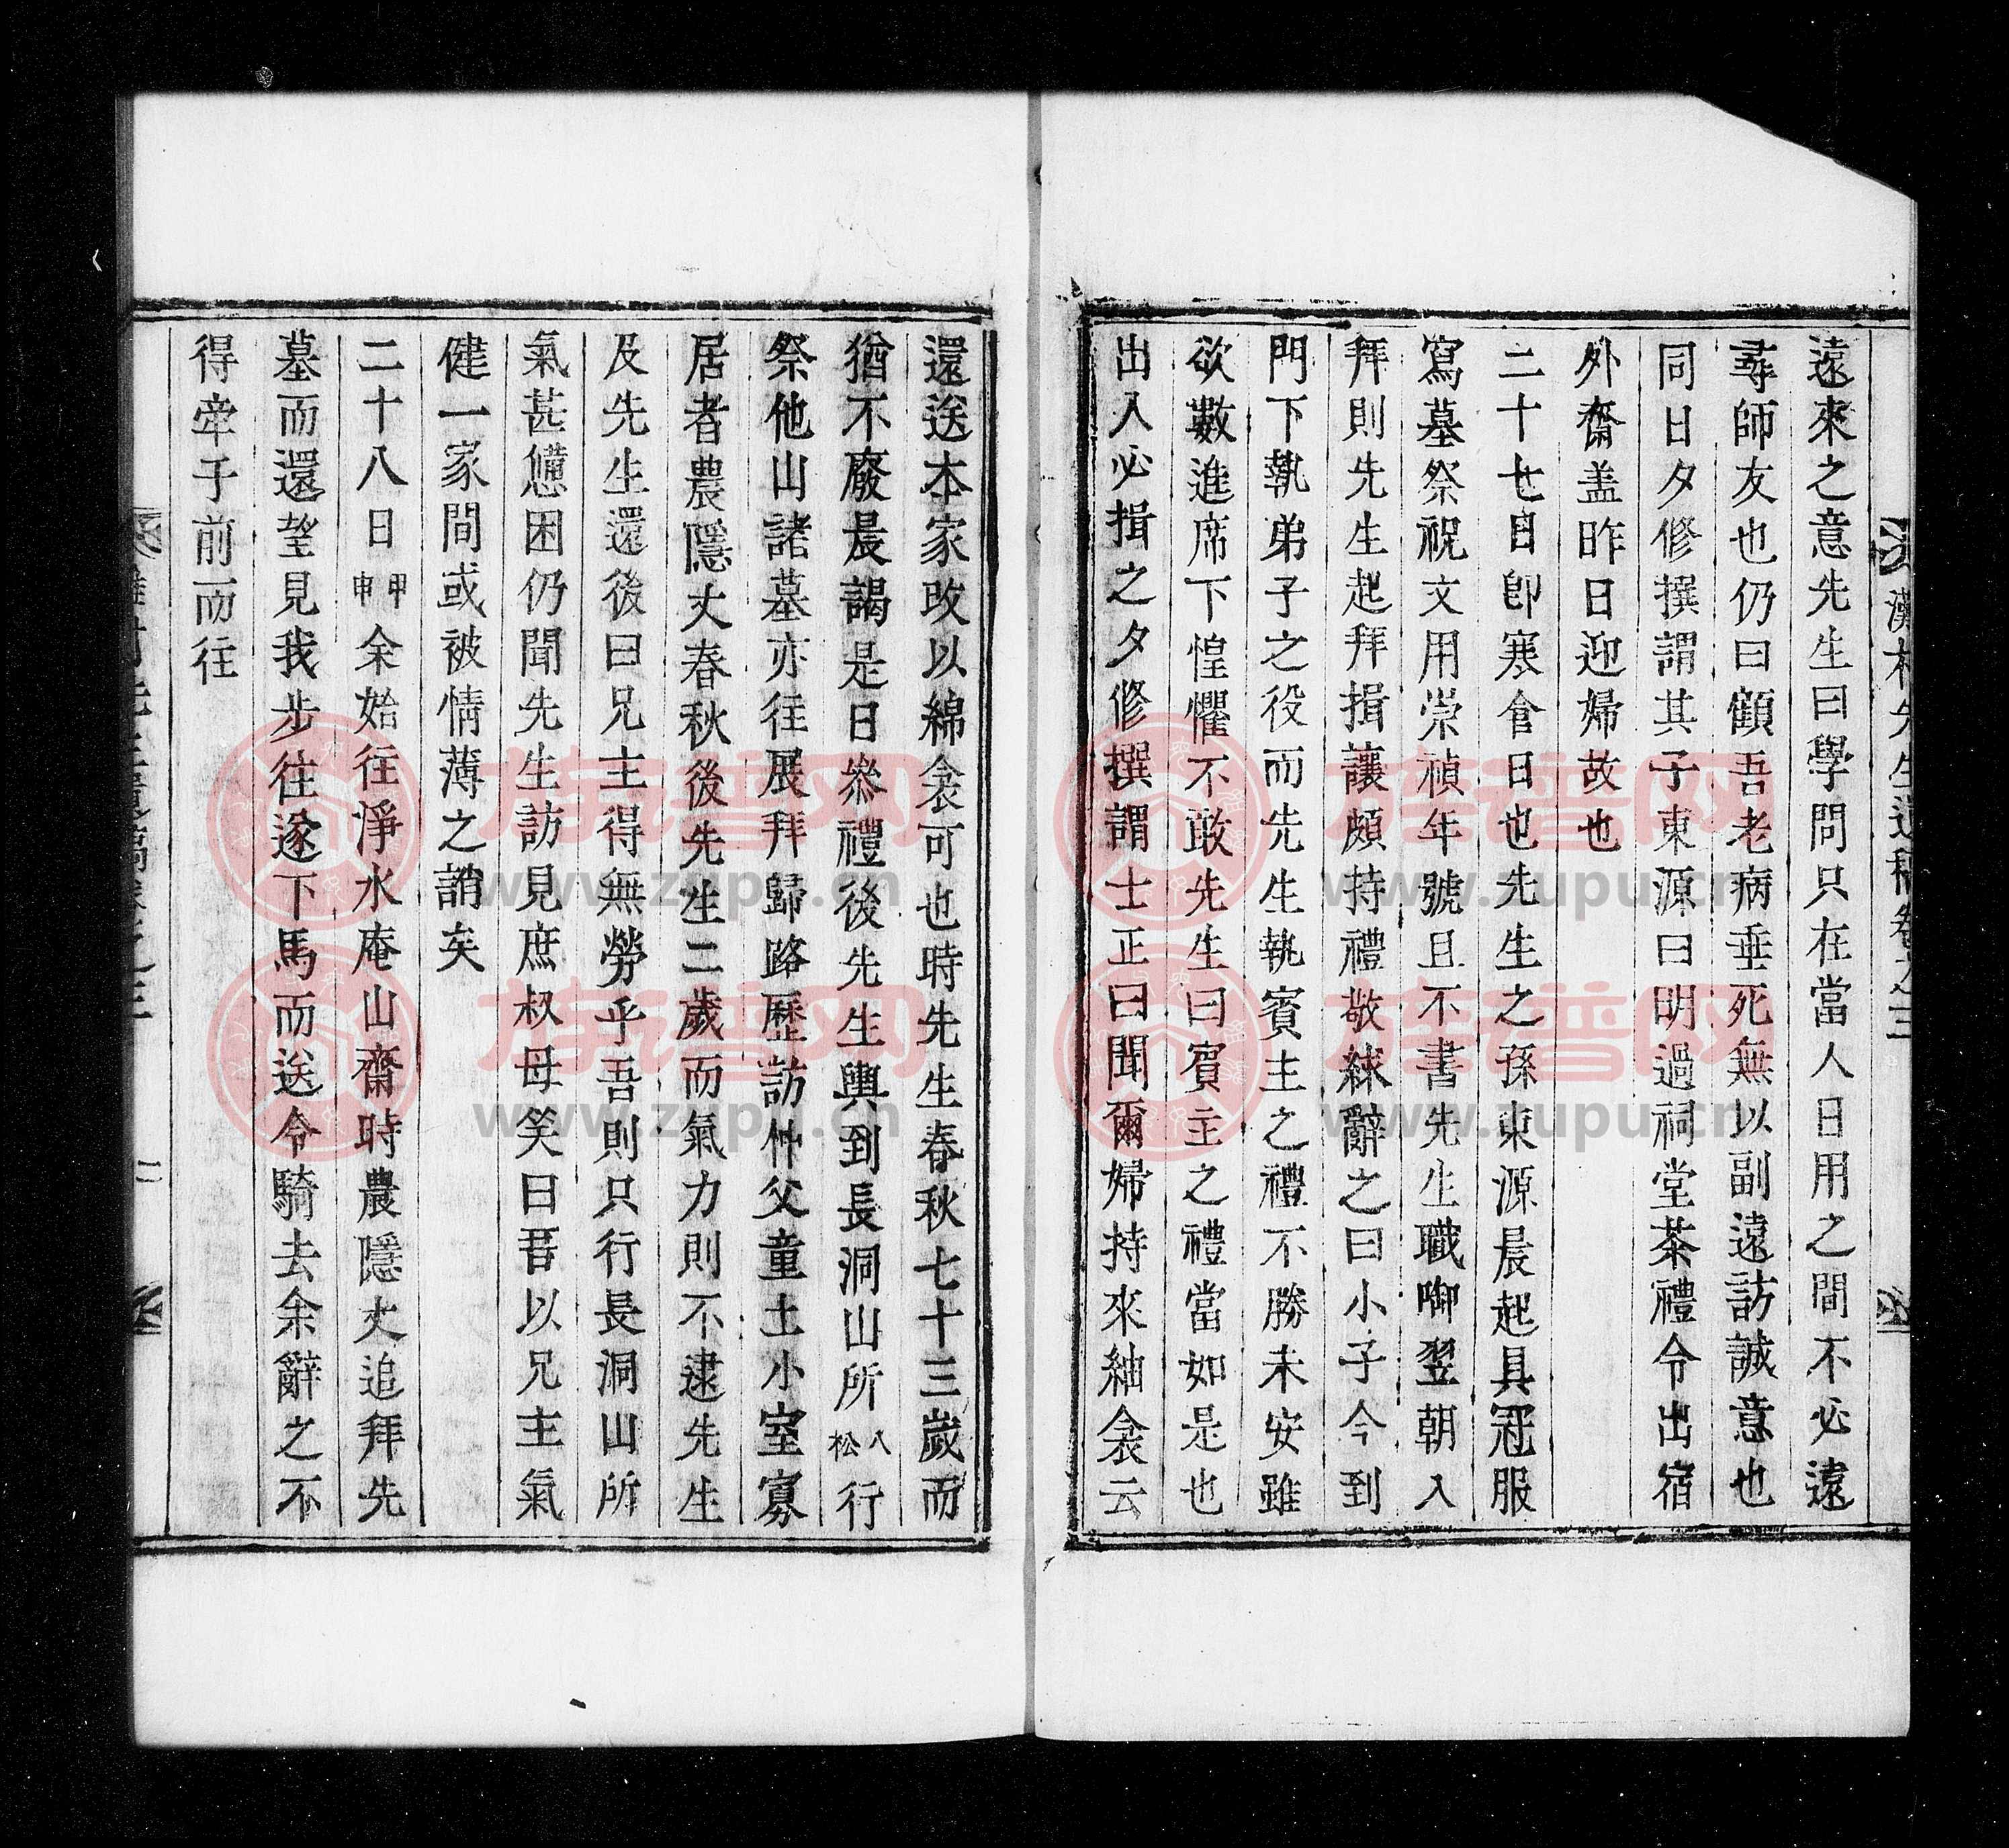 遠來之意先生曰學問只在當人日用之間不必遠
尋師友也仍曰顧吾老病垂死無以副遠訪誠意也
同日夕修撰謂其子東源曰明過祠堂茶禮令出宿
外齋盖昨日迎婦故也
二十七日卽寒食日也先生之孫東源晨起具冠服
寫墓祭祝文用崇禎年號且不書先生職啣翌朝入
拜則先生起拜揖讓頗持禮敬絿辭之曰小子今到
門下執弟子之役而先生執賓主之禮不勝未安雖
欲數進席下惶懼不敢先生曰賓主之禮當如是也
出入必揖之夕修撰謂士正曰聞爾婦持來紬衾云
還送本家改以綿衾可也時先生春秋七十三歲而
猶不廢晨謁是日叅禮後先生輿到長洞山所八松行
祭他山諸墓亦往展拜歸路歷訪仲父童土小室寡
居者農隱丈春秋後先生二歲而氣力則不逮先生
及先生還後曰兄主得無勞乎吾則只行長洞山所
氣甚憊困仍聞先生訪見庶叔母笑曰吾以兄主氣
健一家間或被情薄之誚矣
二十八日甲申余始往淨水庵山齋時農隱丈追拜先
墓而還望見我步往遂下馬而送令騎去余辭之不
得牽子前而往
先生遺稿卷之三
二